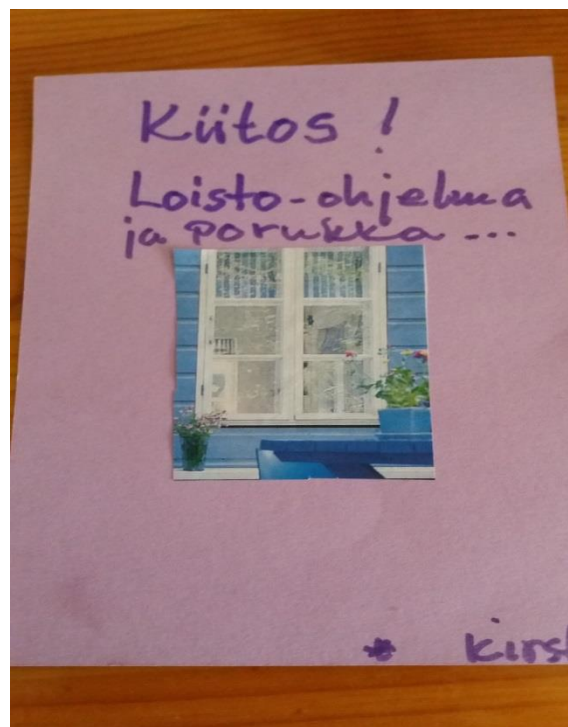 Kiitos !
Loisto-ohjelma
ja porukka ...
* kirs